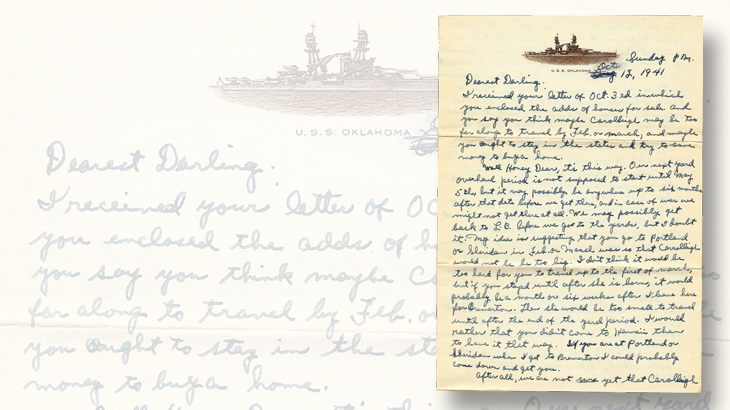 U. S. S. OKLAHOMA
Dearest Darling.
I received your letter of Oc
you enclosed the adds of h
you say you think maybe Ca
far along to travel by Feb. or
you ought to stay in the sta
money to buy a home.
Sunday P.M.
U. S. S. OKLAHOMA Oct. 12, 1941
Dearest Darling.
I received your letter of Oct. 3rd in which
you enclosed the adds of houses for sale and
you say you think maybe Caralleigh may be too
far along to travel by Feb. or march, and maybe
you ought to stay in the states and try to save
money to buy a home.
Well Honey Dear, it's this way. Our next yard
overhaul period is not supposed to start until May
5th, but it may possibly be anywhere up to six months
after that date before we get there, and in case of war we
might not get there at all. We may possibly get
back to L.B. before we go to the yards, but I doubt
it. My idea in suggesting that you go to Portland
or Sheridan in Feb. or March was so that Caralleigh
would not be too big. I don't think it would be
too hard for you to travel up to the first of march,
but if you stayed until after she is born, it would
probably be a month or six weeks after I leave here
for Bremerton. Then she would be too small to travel
until after the end of the yard period. I would
rather that you didn't come to Hawaii than
to have it that way. If you are at Portland or
Sheridan when I get to Bremerton I could probably
come down and get you.
After all, we are not sure yet that Caralleigh